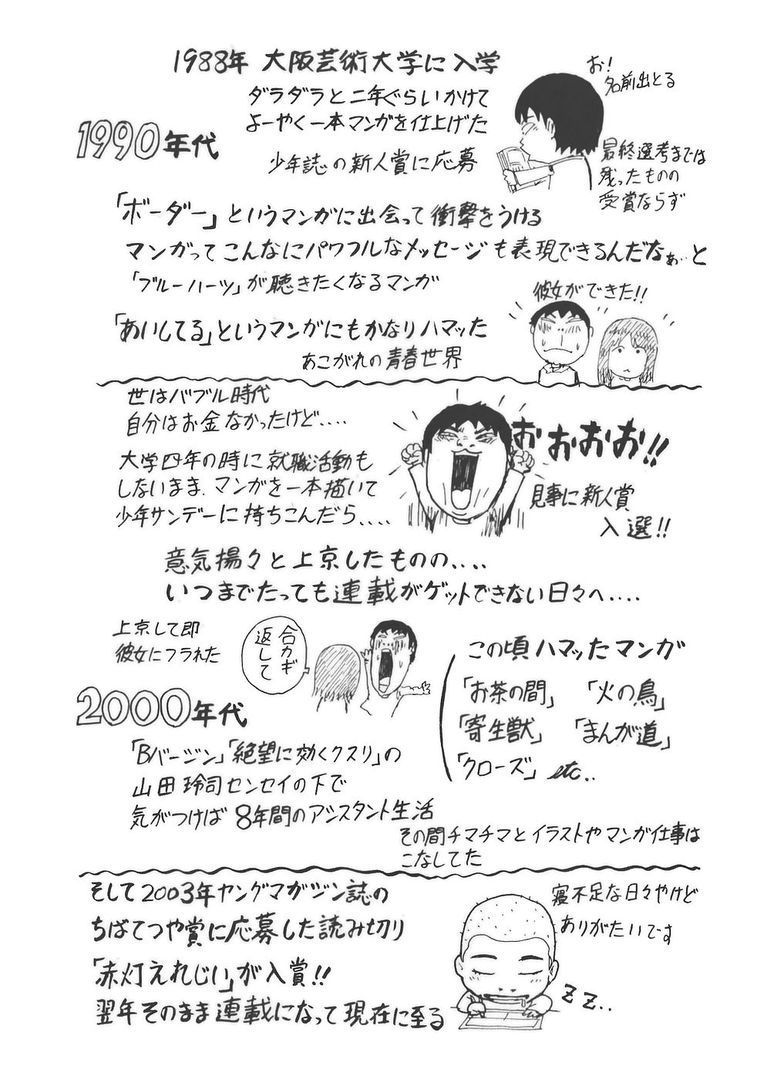 1988年 大阪芸術大学に入学
お!
名前出とる
ダラダラと二年ぐらいかけて
よーやく一本マンガを仕上げた
1990年代
少年誌の新人賞に応募
最終選考までは
残ったものの
受賞ならず
「ボーダー」というマンガに出会って衝撃をうける
マンガってこんなにパワフルなメッセージも表現できるんだなぁ‥と
「ブルーハーツ」が聴きたくなるマンガ
彼女ができた!!
「あいしてる」というマンガにもかなりハマッた
あこがれの青春世界
世はバブル時代
自分はお金なかったけど‥‥
おおおお!!
大学四年の時に就職活動も
しないまま、マンガを一本描いて
少年サンデーに持ちこんだら‥‥
見事に新人賞
入選!!
意気揚々と上京したものの‥‥
いつまでたっても連載がゲットできない日々へ‥‥
上京して即
彼女にフラれた
合カギ
返して
この頃ハマッたマンガ
「お茶の間」 「火の鳥」
「寄生獣」 「まんが道」
「クローズ」 etc‥
2000年代
「Bバージン」「絶望に効くクスリ」の
山田玲司センセイの下で
気がつけば8年間のアシスタント生活
その間チマチマとイラストやマンガ仕事は
こなしてた
そして2003年ヤングマガジン誌の
ちばてつや賞に応募した読み切り
「赤灯えれじい」が入賞!!
翌年そのまま連載になって現在に至る
寝不足な日々やけど
ありがたいです
ZZ‥